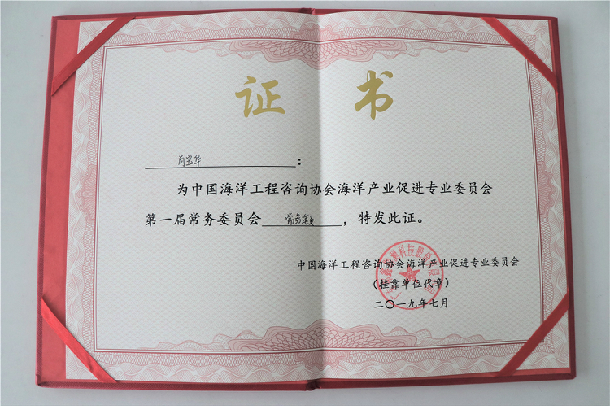 证 书
:
为中国海洋工程咨询协会海洋产业促进专业委员会
第一届常务委员会常务委员，特发此证。
中国海洋工程咨询协会海洋产业促进专业委员会
（挂靠单位代章）
二〇一九年七月